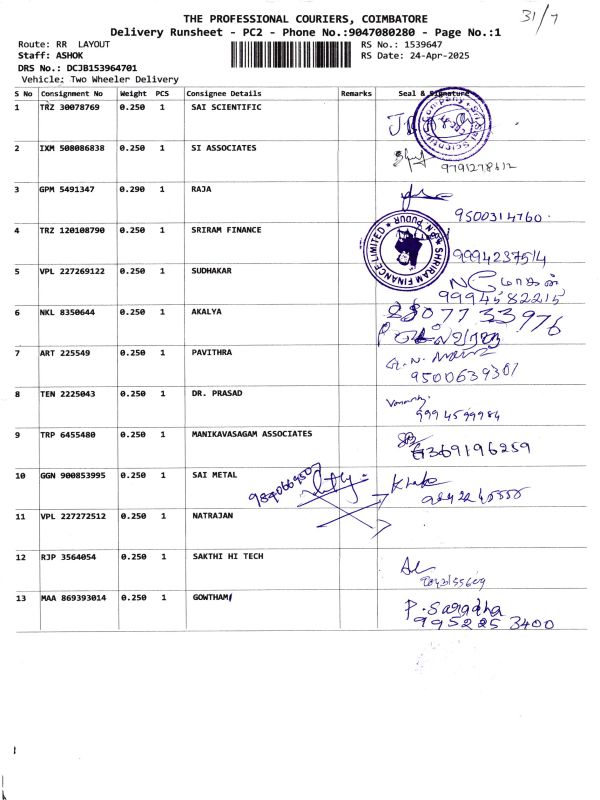 31/7
THE PROFESSIONAL COURIERS, COIMBATORE
Delivery Runsheet - PC2 - Phone No.:9047080280 - Page No.:1
Route: RR LAYOUT
RS No.: 1539647
Staff: ASHOK
RS Date: 24-Apr-2025
DRS No.: DCJB153964701
Vehicle: Two Wheeler Delivery
S No Consignment No Weight PCS Consignee Details Remarks Seal & Signature
1 TRZ 30078769 0.250 1 SAI SCIENTIFIC
2 IXM 508086838 0.250 1 SI ASSOCIATES
9791278612
3 GPM 5491347 0.290 1 RAJA
9500314760.
4 TRZ 120108790 0.250 1 SRIRAM FINANCE
SHRIRAM FINANCE LIMITED
9994237514
5 VPL 227269122 0.250 1 SUDHAKAR
மோகன்
9994582215
6 NKL 8350644 0.250 1 AKALYA
7 ART 225549 0.250 1 PAVITHRA
9500639307
8 TEN 2225043 0.250 1 DR. PRASAD
9994599984
9 TRP 6455480 0.250 1 MANIKAVASAGAM ASSOCIATES
6369196259
10 GGN 900853995 0.250 1 SAI METAL
11 VPL 227272512 0.250 1 NATRAJAN
12 RJP 3564054 0.250 1 SAKTHI HI TECH
13 MAA 869393014 0.250 1 GOWTHAM
P. Saradha
9952253400